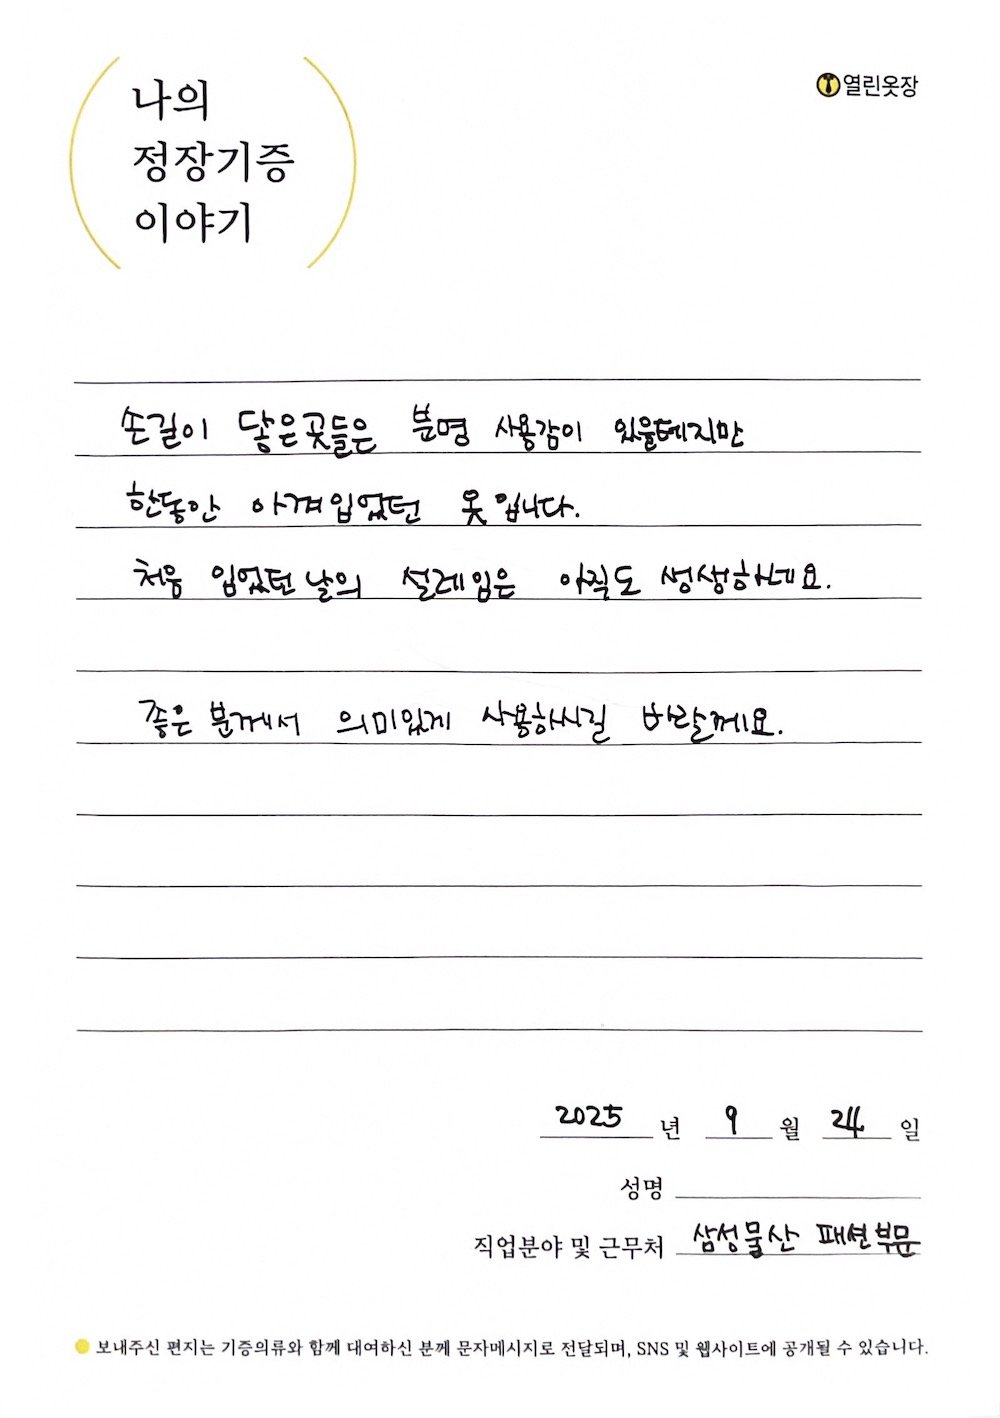 나의
정장기증
이야기
열린옷장
손길이 닿은곳들은 분명 사용감이 있을테지만
한동안 아껴입었던 옷입니다.
처음 입었던 날의 설레임은 아직도 생생하네요.
좋은 분께서 의미있게 사용하시길 바랄께요.
2025 년 9 월 24 일
성명
직업분야 및 근무처 삼성물산 패션부문
보내주신 편지는 기증의류와 함께 대여하신 분께 문자메시지로 전달되며, SNS 및 웹사이트에 공개될 수 있습니다.